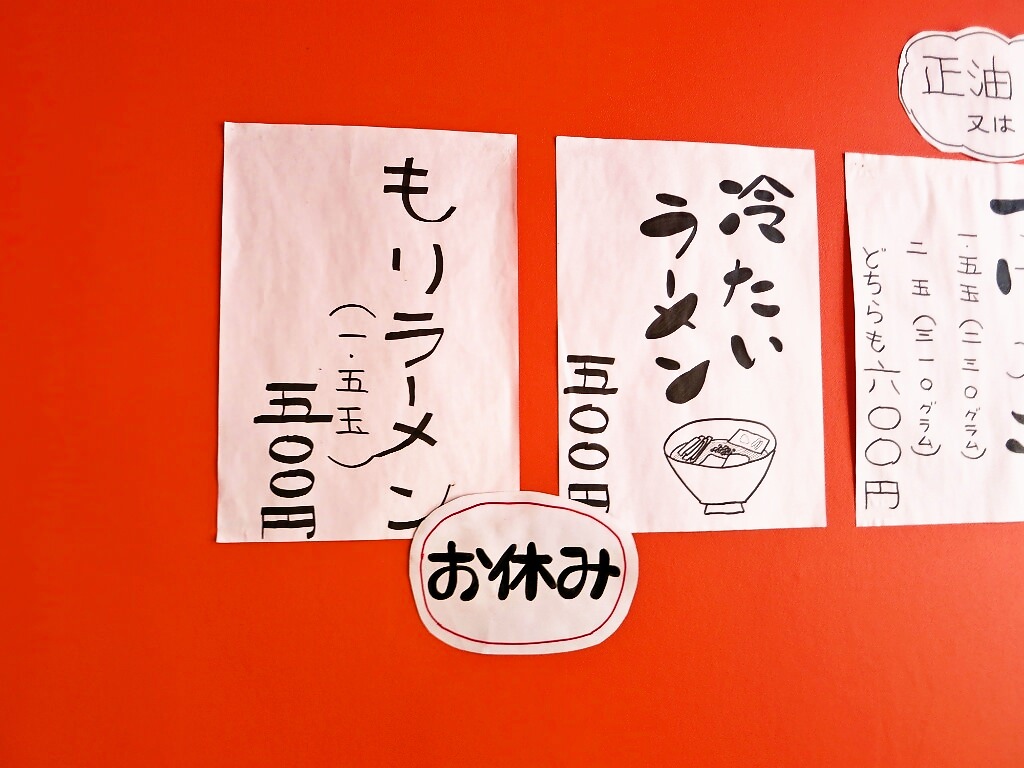 もりラーメン
（一.五玉）
五〇〇円
冷たい
ラーメン
五〇〇円
お休み
正油
又は
一.五玉（二三〇グラム）
二　五（三一〇グラム）
どちらも六〇〇円